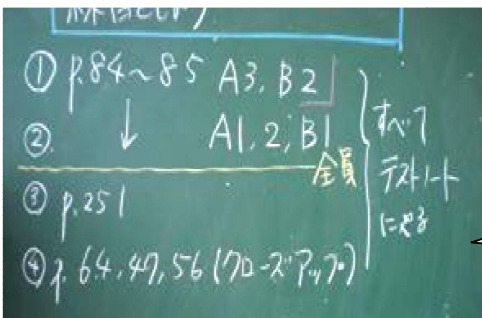 ① p.84~85 A3, B2
② ↓ A1, 2, B1
全員
③ p.251
④ p.64, 47, 56 (クローズアップ)
すべて
テストノート
にやる